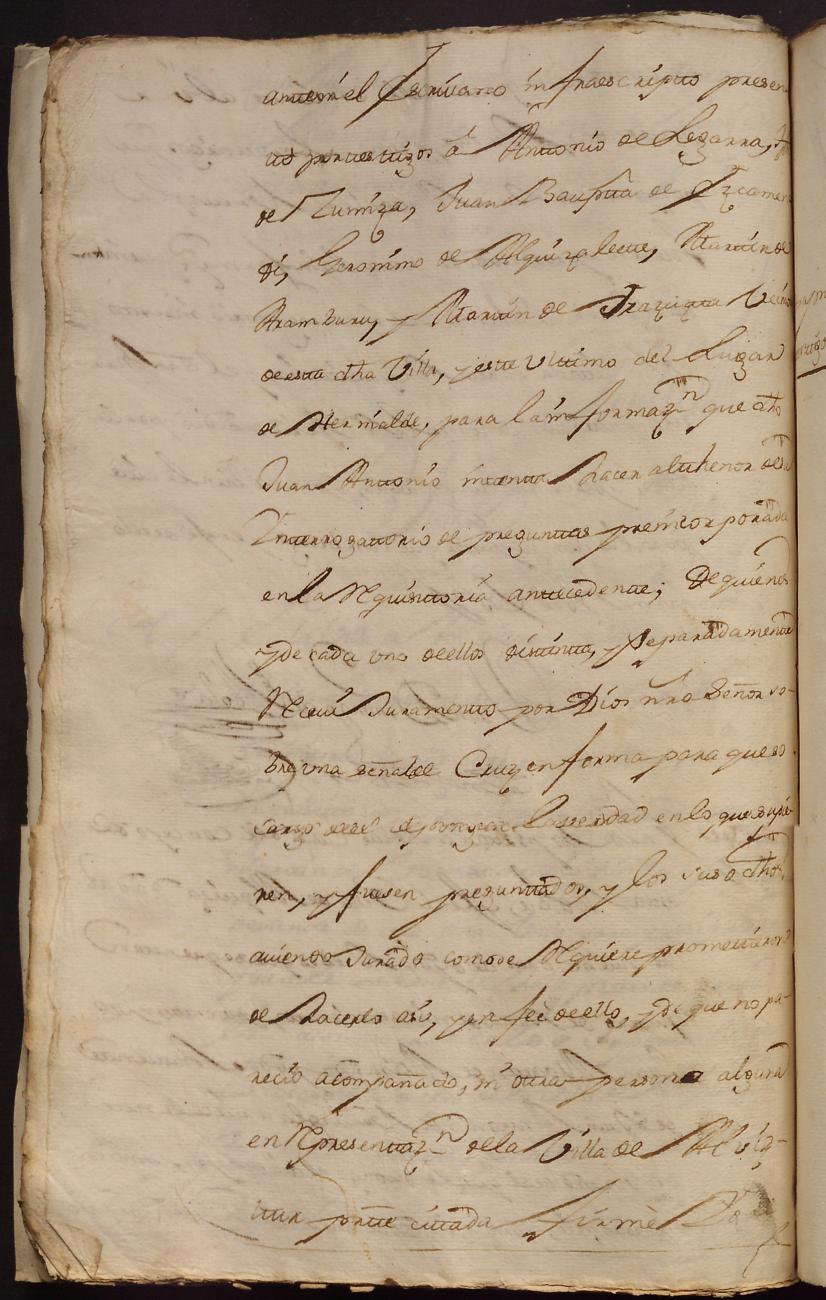 ante mi el Escriuano infraescripto presen
to por testigos â Antonio de Legarra,
de Zuniza, Juan Baup.ta de Yzcamen
di, Geronimo de Alquizalete, Martin de
Aramburu, y Martin de Irazuzta Veinos
de esta dha Villa, y este Vltimo del Lugar
de Hernialde, para la informaz.n que dho
Juan Antonio intenta hacer al thenor de su
Ynterrogatorio de preguntas preincorporada
en la Rquisitoria antecedente; De quienes
y de cada vno de ellos distinta, y separadamente
Receui Juramento por Dios nrô Señor so-
bre vna señal de Cruz en forma para que so
cargo de el digan la verdad en lo que supie-
ren, y fuesen preguntados, y los suso dhos,
auiendo Jurado como se Rquiere prometieron
de hacerlo asi, y en feé de ello, y de que no pa-
recio acompañado, ni otra persona alguna
en Rpresentaz.n de la Villa de Alviz-
tur parte citada firmè Yo